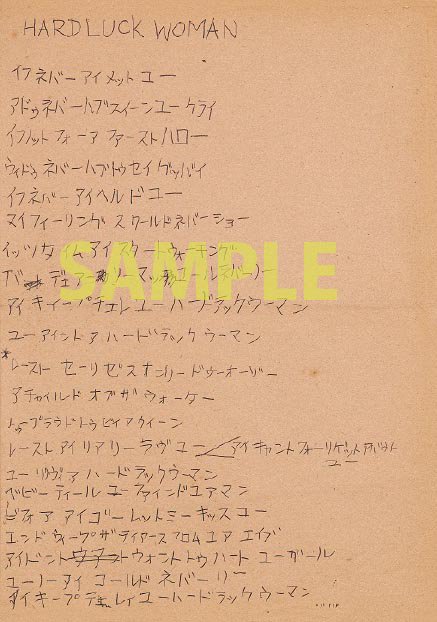 HARD LUCK WOMAN
イフ ネバー アイ メット ユー
アドゥ ネバー ハブ スィーン ユー クライ
イフ ノット フォー ア ファースト ハロー
ウィドゥ ネバー ハブ トゥ セイ グッバイ
イフ ネバー アイ ヘルド ユー
マイ フィーリングス ウールド ネバー ショー
イッツ タイム アイ スター ウォーキング
SAMPLE
アイ キープ
ユー ハード ラック ウーマン
ユー アイント ア ハード ラック ウーマン
レースト セーリゼス オンリー ドゥーオーザー
アチャイルド オブ ザ ウォーター
トゥ プラウド トゥ ビィ ア クイーン
レースト アイ リアリー ラヴ ユー アイ キャント フォーリゲット アバウト ユー
ユー リヴィ ア ハード ラック ウーマン
ベビー ティール ユー ファインド ユア マン
ビフォア アイ ゴー レット ミー キッス ユー
エンド ウィープ ザ ティアーズ フロム ユア エイズ
アイ ドント ウォント トゥ ハート ユー ガール
ユー ノー アイ コールド ネバー リー
アイ キープ テレィ ユー ハード ラック ウーマン